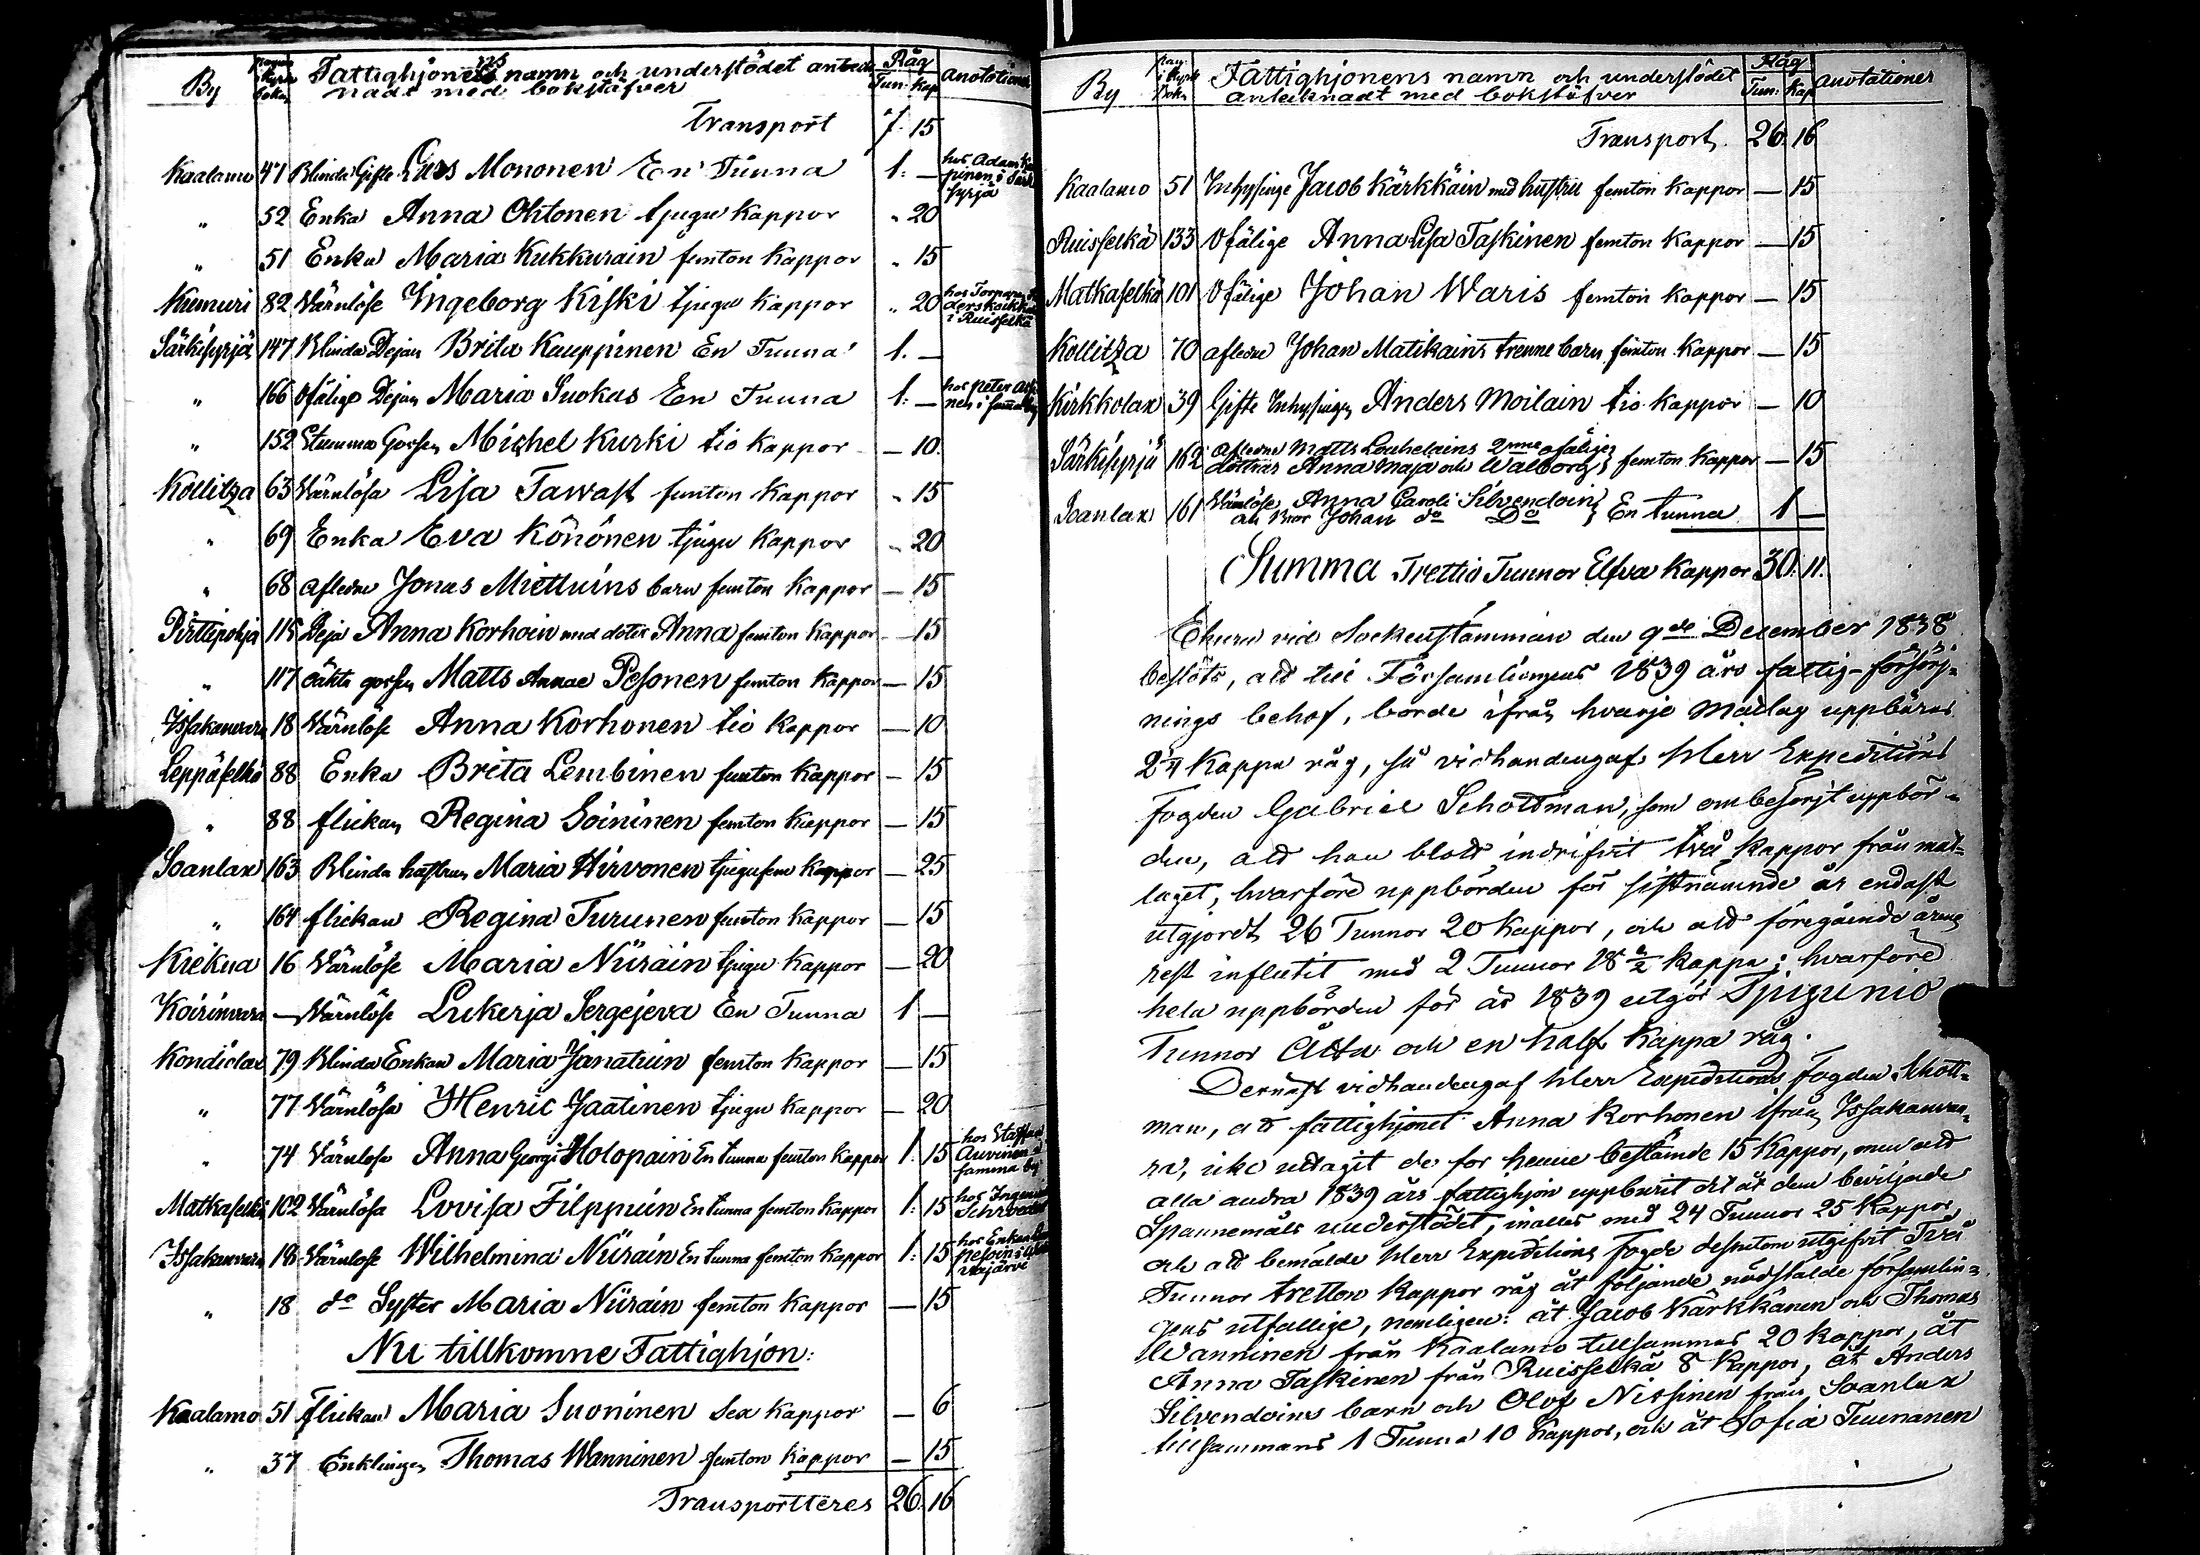 By
Fattighjonens namn och understödet anteck-
nadt med bokstäfver
Råg
Tun: Kap
Anotationer
Transport 7. 15
Kaalamo 47 Blinda Gifte Lars Mononen En Tunna 1. — hos Adam
" 52 Enka Anna Oktonen tjugu kappor " 20
" 51 Enka Maria Kukkurain femton kappor " 15
Kumuri 82 Värnlöse Ingeborg Kiski tjugu kappor " 20 i Ruisselkä
Särkisyrjä 147 Blinda Dejan Brita Kauppinen En Tunna 1. —
" 166 Ofälige Dejan Maria Suokas En Tunna 1. — hos Peter
" 152 Stumma Gossen Michel Kurki tio kappor — 10.
Kollitza 63 Värnlösa Lisa Tawast femton kappor " 15
" 69 Enka Eva Könönen tjugu kappor " 20
" 68 afledne Jonas Miettuins barn femton kappor — 15
Pirttipohja 115 Deja Anna Korhoin med doter Anna femton kappor — 15
" 117 oäkta gossen Matts Annae Pesonen femton kappor — 15
Issakanvara 18 Värnlöse Anna Korhonen tio kappor — 10
Leppäselkä 88 Enka Brita Lembinen femton kappor — 15
" 88 flickan Regina Soininen femton kappor — 15
Soanlax 163 Blinda hustrun Maria Hirvonen tjugufem kappor — 25
" 164 flickan Regina Turunen femton kappor — 15
Kiekua 16 Värnlöse Maria Niirain tjugu kappor — 20
Koirinvara — Värnlöse Lukerja Sergejeva En Tunna 1 —
Kondiolax 79 Blinda Enkan Maria Janatuin femton kappor — 15
" 77 Värnlösa Henric Jaatinen tjugu kappor — 20
" 74 Värnlose Anna Georgi Holopain En tunna femton kappor 1. 15 hos Staffan Auvinen i samma by
Matkaselkä 102 Värnlösa Lovisa Filppuin En tunna femton kappor 1. 15 hos
Issakanvara 18 Värnlose Wilhelmina Niirain En tunna femton kappor 1. 15 hos Enkan
" 18 do Syster Maria Niirain femton kappor — 15
Nu tillkomne Fattighjon:
Kaalamo 51 Flickan Maria Suoninen Sex kappor — 6
" 37 Enklingen Thomas Wanninen femton kappor — 15
Transportteres 26. 16
By
Fattighjonens namn och understödet
antecknadt med bokstäfver
Råg
Tun: Kap
Anotationer
Transport. 26. 16
Kaalamo 51 Inhysinge Jacob Kärkkäin med hustru femton kappor — 15
Ruisselkä 133 Ofälige Anna Lisa Taskinen femton kappor — 15
Matkaselkä 101 Ofälige Johan Waris femton kappor — 15
Kollitza 70 afledne Johan Matikains trenne barn femton kappor — 15
Kirkkolax 39 Gifte Inhysingen Anders Moilain tio kappor — 10
Särkisyrjä 162 afledne Matts Louhelains 2nne ofälige
döttrar Anna Maja och Walborg femton kappor — 15
Soanlax 161 Värnlöse Anna Caroli Silvendoin
och Bror Johan do Do En tunna 1 —
Summa Trettio Tunnor Elfva kappor 30. 11.
Ehuru vid Sockenstämman den 9de December 1838
beslöts, att till Församlingens 1839 års fattig-försörj-
nings behof, borde ifrån hvarje matlag uppbäras
2 1/4 Kappa råg, så vidhandengaf Herr Expeditions
Fogden Gabriel Schottman, som ombesörjt uppbör-
den, att han blott indrifvit två kappor från mat-
laget, hvarföre uppbörden för sistnämnde år endast
utgjordt 26 Tunnor 20 Kappor, och att föregående årens
rest influtit med 2 Tunnor 18 1/2 kappa; hvarföre
hela uppbörden för år 1839 utgör Tjugunio
Tunnor Åtta och en half kappa råg.
Dernäst vidhandengaf Herr Expeditions Fogden Schott-
man, att fattighjonet Anna Korhonen ifrån Issakanva-
ra, icke uttagit de for henne bestämde 15 Kappor, men att
alla andra 1839 års fattighjon uppburit det åt dem beviljade
Spannemåls understödet, inalles med 24 Tunnor 25 Kappor,
och att bemälde Herr Expeditions Fogde dessutom utgifvit Två
Tunnor tretton kappor råg åt följande nödstälde församlin-
gens utfattige, nemligen: åt Jacob Kärkkänen och Thomas
Wanninen från Kaalamo tillsammas 20 kappor, åt
Anna Taskinen från Ruisselkä 8 Kappor, åt Anders
Silvendoins barn och Olof Nissinen från Soanlax
tillsammans 1 Tunna 10 Kappor, och åt Sofia Tuunanen